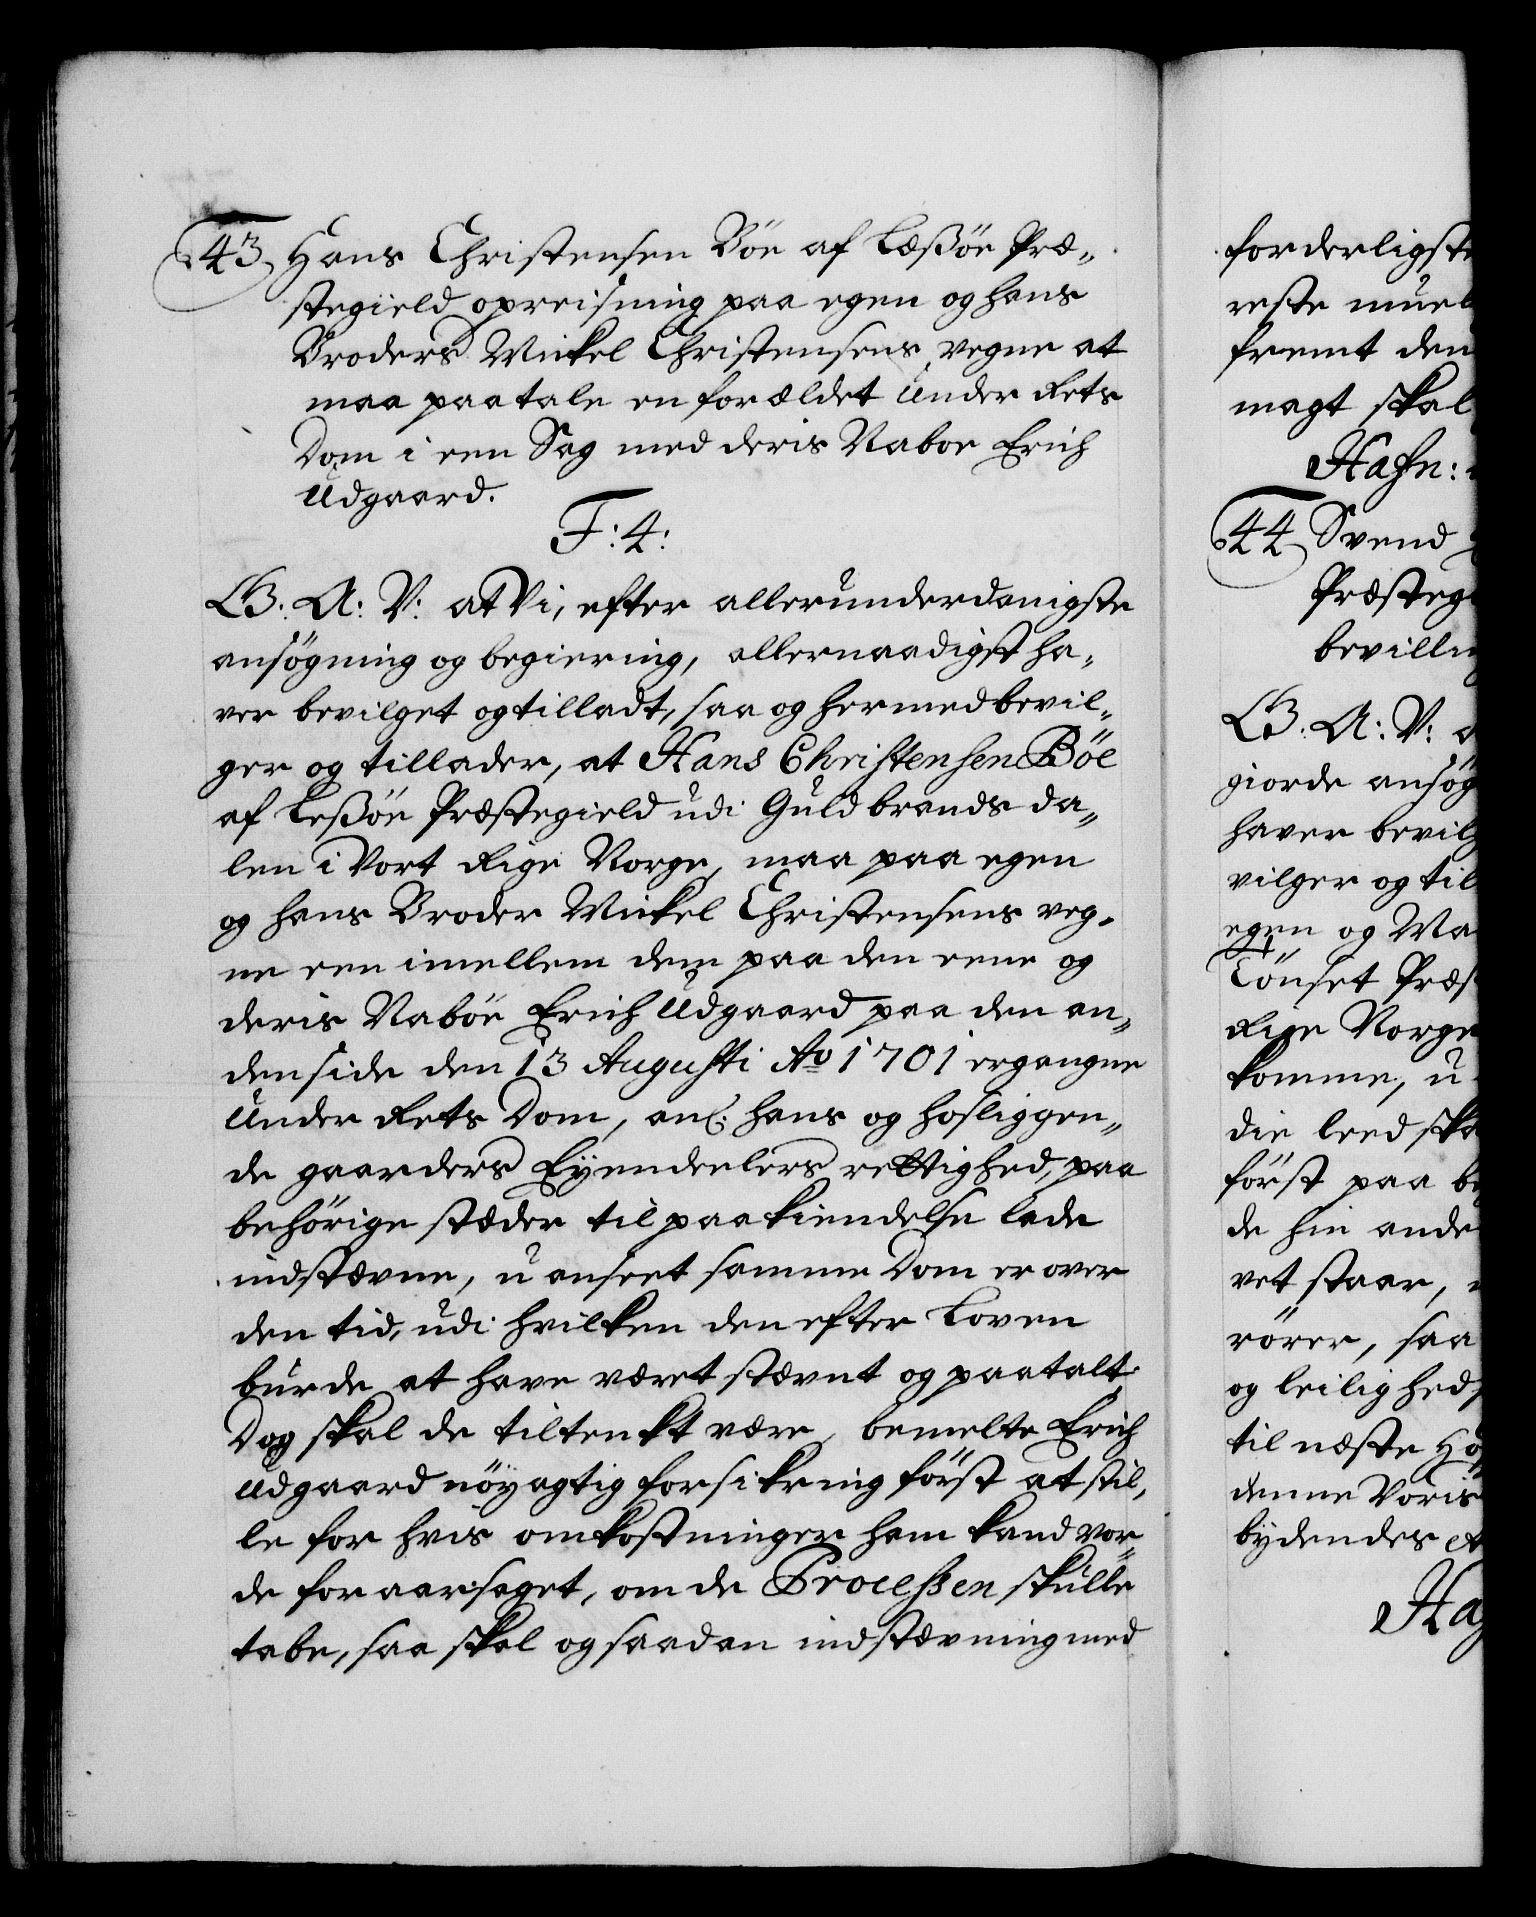 43. Hans Christensen Böe af Leßöe Præ„
stegield opreisning paa egen og hans
Broders Mickel Christensens vegne at
maa paatale en forældet Under Rets
Dom i een Sag med deris Naboe Erich
Udgaard.
F: 4:
G. A: V: at Vi, efter allerunderdanigste
ansögning og begiering, allernaadigst ha„
ver bevilget og tilladt, saa og hermed bevil„
ger og tillader, at Hans Christensen Böe
af Leßöe Præstegield udi Guldbrands da„
len i Vort Rige Norge, maa paa egen
og hans Broder Mickel Christensens veg„
ne een imellem dem paa den eene og
deris Naböe Erich Udgaard paa den an„
den side den 13 Augusti Ao 1701 ergangne
Under Rets Dom, anl. hans og hosliggen„
de gaarders Eyendeelers rettighed, paa
behörige stæder til paakiendelse lade
indstævne, uanseet samme Dom er over
den tid, udi hvilken den efter Loven
burde at have været stævnt og paatalt.
Dog skal de tiltenkt være, bemelte Erich
Udgaard nöyagtig forsikring först at stil„
le for hvis omkostninger ham kand vor„
de foraarsaget, om de Processen skulle
tabe, saa skal og saadan indstævning med
forderligste
reste muel
fremt den
magt skal
Hafn:
44 Svend
Præsteg
bevilli
G. A: V:
giorde ansög
haver bevilg
vilger og til
egen og Ma
Tönset Præs
Rige Norge
komme, u
die leed ska
först paa be
de hin ande
vet staar,
rörer, saa
og leilighed
til næste Ho
denne Voris
bydendes
Haf